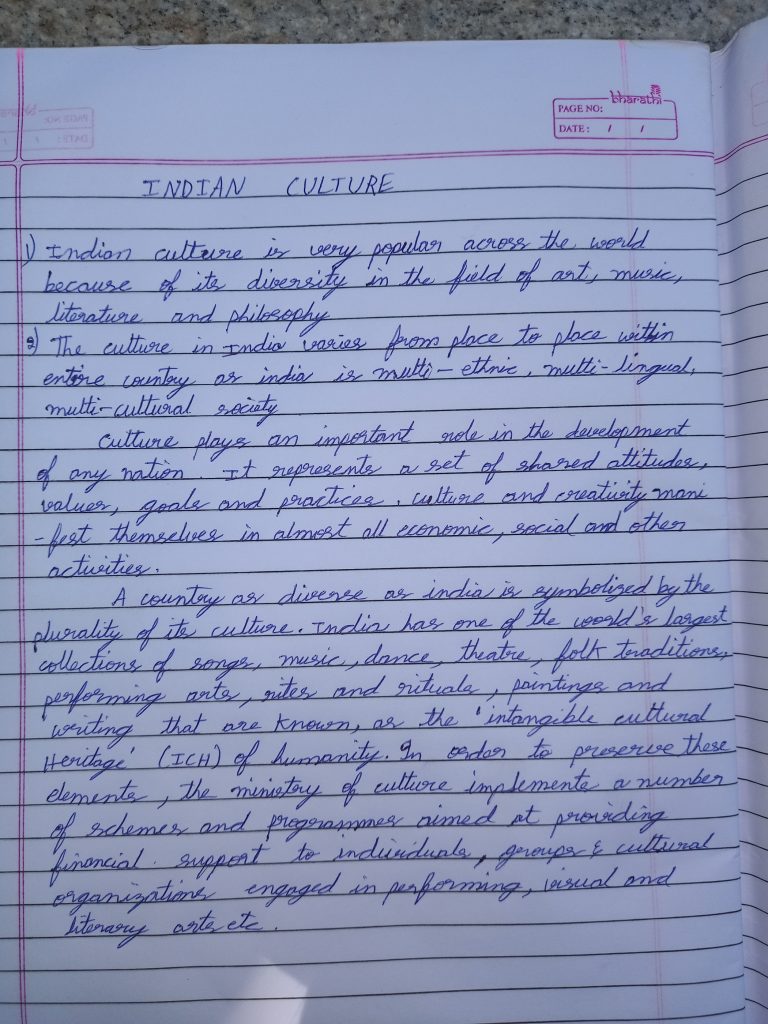 bharathi
PAGE NO:
DATE: / /
INDIAN CULTURE
1) Indian culture is very popular across the world
because of its diversity in the field of art, music,
literature and philosophy
2) The culture in India varies from place to place within
entire country as india is multi-ethnic, multi-lingual,
multi-cultural society
Culture plays an important role in the development
of any nation. It represents a set of shared attitudes,
values, goals and practices. culture and creativity mani
-fest themselves in almost all economic, social and other
activities.
A country as diverse as india is symbolized by the
plurality of its culture. India has one of the world's largest
collections of songs, music, dance, theatre, folk traditions,
performing arts, rites and rituals, paintings and
writing that are known, as the 'intangible cultural
Heritage' (ICH) of humanity. In order to preserve these
elements, the ministry of culture implements a number
of schemes and programmes aimed at providing
financial. support to individuals, groups & cultural
organizations engaged in performing, visual and
literary arts etc.